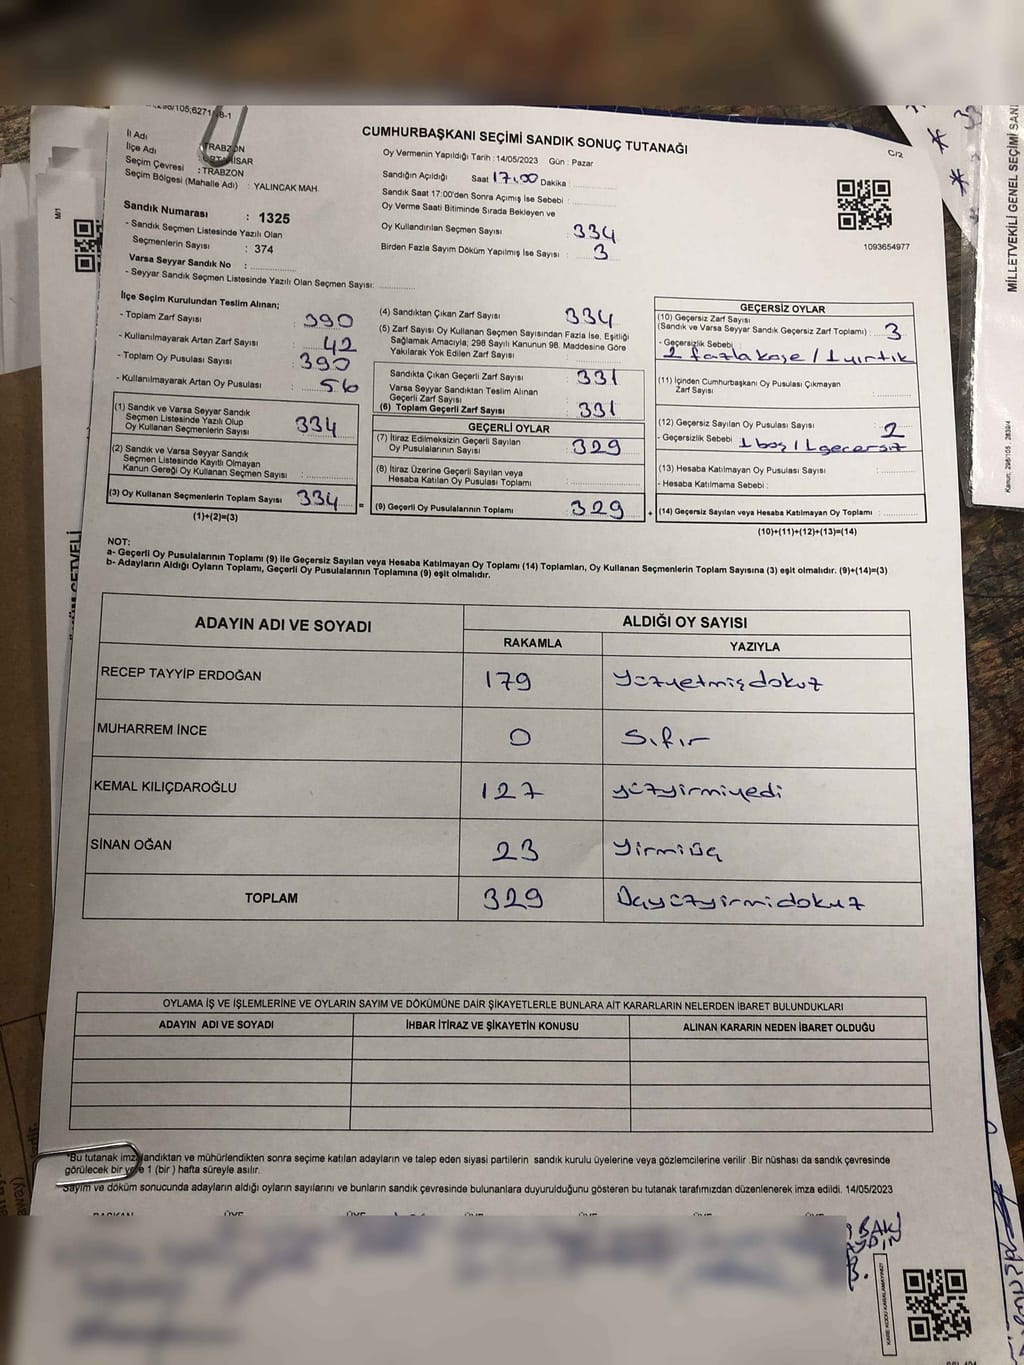 CUMHURBAŞKANI SEÇİMİ SANDIK SONUÇ TUTANAĞI
C/2
İl Adı : TRABZON
İlçe Adı
Seçim Çevresi : TRABZON
Seçim Bölgesi (Mahalle Adı) : YALINCAK MAH.
Sandık Numarası : 1325
- Sandık Seçmen Listesinde Yazılı Olan
Seçmenlerin Sayısı : 374
Varsa Seyyar Sandık No :
- Seyyar Sandık Seçmen Listesinde Yazılı Olan Seçmen Sayısı:
Oy Vermenin Yapıldığı Tarih : 14/05/2023 Gün : Pazar
Sandığın Açıldığı Saat 17.00 Dakika :
Sandık Saat 17:00'den Sonra Açımış İse Sebebi :
Oy Verme Saati Bitiminde Sırada Bekleyen ve
Oy Kullandırılan Seçmen Sayısı : 334
Birden Fazla Sayım Döküm Yapılmış İse Sayısı : 3
1093654977
İlçe Seçim Kurulundan Teslim Alınan;
- Toplam Zarf Sayısı : 390
- Kullanılmayarak Artan Zarf Sayısı : 42
- Toplam Oy Pusulası Sayısı : 390
- Kullanılmayarak Artan Oy Pusulası : 56
(1) Sandık ve Varsa Seyyar Sandık
Seçmen Listesinde Yazılı Olup
Oy Kullanan Seçmenlerin Sayısı : 334
(2) Sandık ve Varsa Seyyar Sandık
Seçmen Listesinde Kayıtlı Olmayan
Kanun Gereği Oy Kullanan Seçmen Sayısı :
(3) Oy Kullanan Seçmenlerin Toplam Sayısı : 334
(1)+(2)=(3)
(4) Sandıktan Çıkan Zarf Sayısı : 334
(5) Zarf Sayısı Oy Kullanan Seçmen Sayısından Fazla İse, Eşitliği
Sağlamak Amacıyla; 298 Sayılı Kanunun 98. Maddesine Göre
Yakılarak Yok Edilen Zarf Sayısı :
Sandıkta Çıkan Geçerli Zarf Sayısı : 331
Varsa Seyyar Sandıktan Teslim Alınan
Geçerli Zarf Sayısı :
(6) Toplam Geçerli Zarf Sayısı : 331
GEÇERLİ OYLAR
(7) İtiraz Edilmeksizin Geçerli Sayılan
Oy Pusulalarının Sayısı : 329
(8) İtiraz Üzerine Geçerli Sayılan veya
Hesaba Katılan Oy Pusulası Toplamı :
(9) Geçerli Oy Pusulalarının Toplamı : 329
GEÇERSİZ OYLAR
(10) Geçersiz Zarf Sayısı
(Sandık ve Varsa Seyyar Sandık Geçersiz Zarf Toplamı) : 3
- Geçersizlik Sebebi :
2 fazla kaşe / 1 yırtık
(11) İçinden Cumhurbaşkanı Oy Pusulası Çıkmayan
Zarf Sayısı :
(12) Geçersiz Sayılan Oy Pusulası Sayısı : 2
- Geçersizlik Sebebi : 1 boş / 1 geçersiz
(13) Hesaba Katılmayan Oy Pusulası Sayısı :
- Hesaba Katılmama Sebebi :
(14) Geçersiz Sayılan veya Hesaba Katılmayan Oy Toplamı :
(10)+(11)+(12)+(13)=(14)
NOT:
a- Geçerli Oy Pusulalarının Toplamı (9) ile Geçersiz Sayılan veya Hesaba Katılmayan Oy Toplamı (14) Toplamları, Oy Kullanan Seçmenlerin Toplam Sayısına (3) eşit olmalıdır. (9)+(14)=(3)
b- Adayların Aldığı Oyların Toplamı, Geçerli Oy Pusulalarının Toplamına (9) eşit olmalıdır.
ADAYIN ADI VE SOYADI ALDIĞI OY SAYISI
RAKAMLA YAZIYLA
RECEP TAYYİP ERDOĞAN 179 Yüzyetmişdokuz
MUHARREM İNCE 0 Sıfır
KEMAL KILIÇDAROĞLU 127 yüzyirmiyedi
SİNAN OĞAN 23 Yirmiüç
TOPLAM 329 Üçyüzyirmidokuz
OYLAMA İŞ VE İŞLEMLERİNE VE OYLARIN SAYIM VE DÖKÜMÜNE DAİR ŞİKAYETLERLE BUNLARA AİT KARARLARIN NELERDEN İBARET BULUNDUKLARI
ADAYIN ADI VE SOYADI İHBAR İTİRAZ VE ŞİKAYETİN KONUSU ALINAN KARARIN NEDEN İBARET OLDUĞU
*Bu tutanak imzalandıktan ve mühürlendikten sonra seçime katılan adayların ve talep eden siyasi partilerin sandık kurulu üyelerine veya gözlemcilerine verilir .Bir nüshası da sandık çevresinde
görülecek bir yere 1 (bir ) hafta süreyle asılır.
Sayım ve döküm sonucunda adayların aldığı oyların sayılarını ve bunların sandık çevresinde bulunanlara duyurulduğunu gösteren bu tutanak tarafımızdan düzenlenerek imza edildi. 14/05/2023
MİLLETVEKİLİ GENEL SEÇİMİ SAN
M/1